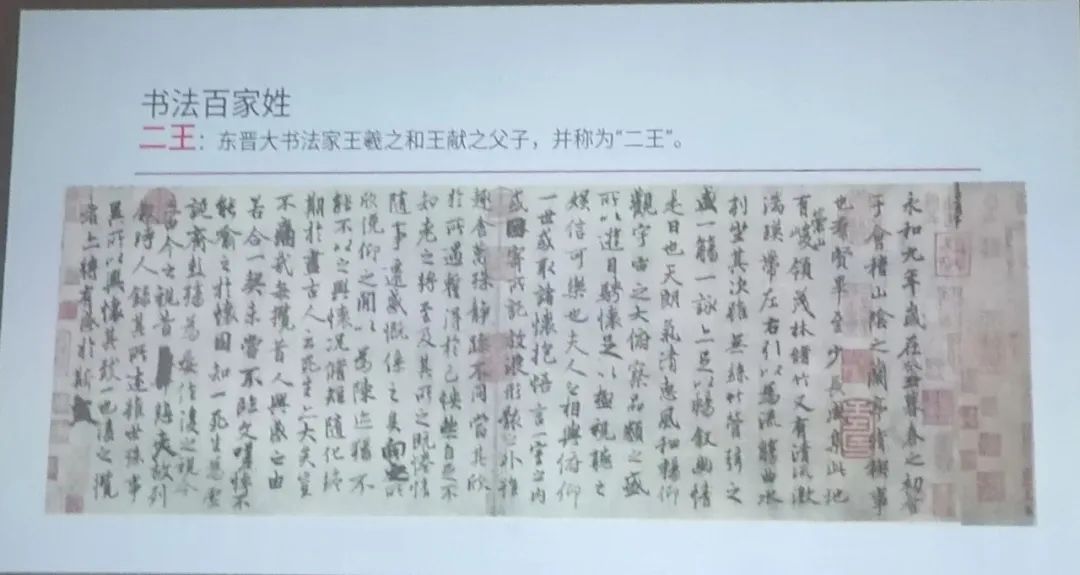 书法百家姓
二王：东晋大书法家王羲之和王献之父子，并称为“二王”。
永和九年歲在癸丑暮春之初會
于會稽山陰之蘭亭脩稧事
也羣賢畢至少長咸集此地
有崇山峻領茂林脩竹又有清流激
湍暎帶左右引以為流觴曲水
列坐其次雖無絲竹管弦之
盛一觴一詠亦足以暢叙幽情
是日也天朗氣清惠風和暢仰
觀宇宙之大俯察品類之盛
所以遊目騁懷足以極視聽之
娛信可樂也夫人之相與俯仰
一世或取諸懷抱悟言一室之內
或因寄所託放浪形骸之外雖
趣舍萬殊靜躁不同當其欣
於所遇暫得於己快然自足不
知老之將至及其所之既惓情
隨事遷感慨係之矣向之所
欣俛仰之閒以為陳迹猶不
能不以之興懷況脩短隨化終
期於盡古人云死生亦大矣豈
不痛哉每攬昔人興感之由
若合一契未嘗不臨文嗟悼不
能喻之於懷固知一死生為虛
誕齊彭殤為妄作後之視今
亦由今之視昔悲夫故列
敘時人錄其所述雖世殊事
異所以興懷其致一也後之攬
者亦將有感於斯文